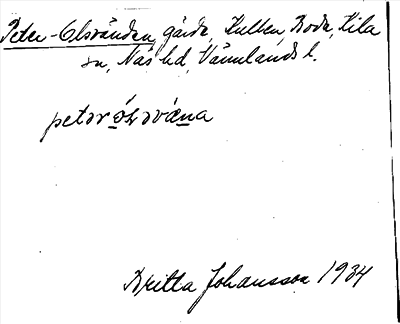 Peter-Olsvänden, gårdn, Kulben, Boda, Kila
sn, Näs hd, Värmlands l.
petər ósvæna
Britta Johansson 1934